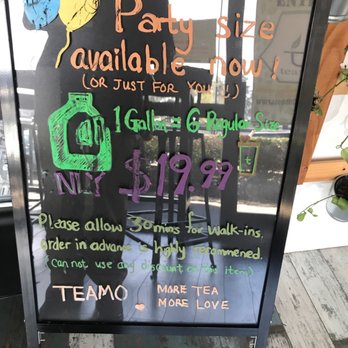 Party size
available now!
(OR JUST FOR YOU!!)
1 Gallon = 6 Regular Size
ONLY $19.99
Please allow 30 mins for walk-ins.
order in advance is highly recommened.
(can not use any discount on this item)
TEAMO MORE TEA
MORE LOVE